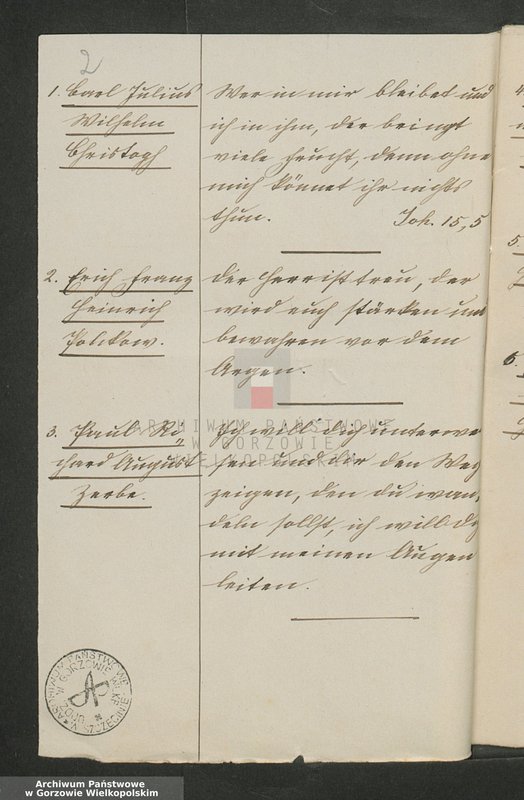 2
1. Carl Julius
Wilhelm
Christoph
Wer in mir bleibet und
ich in ihm, der bringt
viele Frucht, denn ohne
mich könnet ihr nichts
thun. Joh. 15,5
2. Erich Franz
Heinrich
Polckow.
Der Herr ist treu, der
wird euch stärken und
bewahren vor dem
Argen.
3. Paul Ri„
chard August
Zerbe.
Ich will dich unterwei
sen und dir den Weg
zeigen, den du wan„
deln sollst, ich will dich
mit meinen Augen
leiten.
ARCHIWUM PAŃSTWOWE
W GORZOWIE
WIELKOPOLSKIM
Archiwum Państwowe
w Gorzowie Wielkopolskim